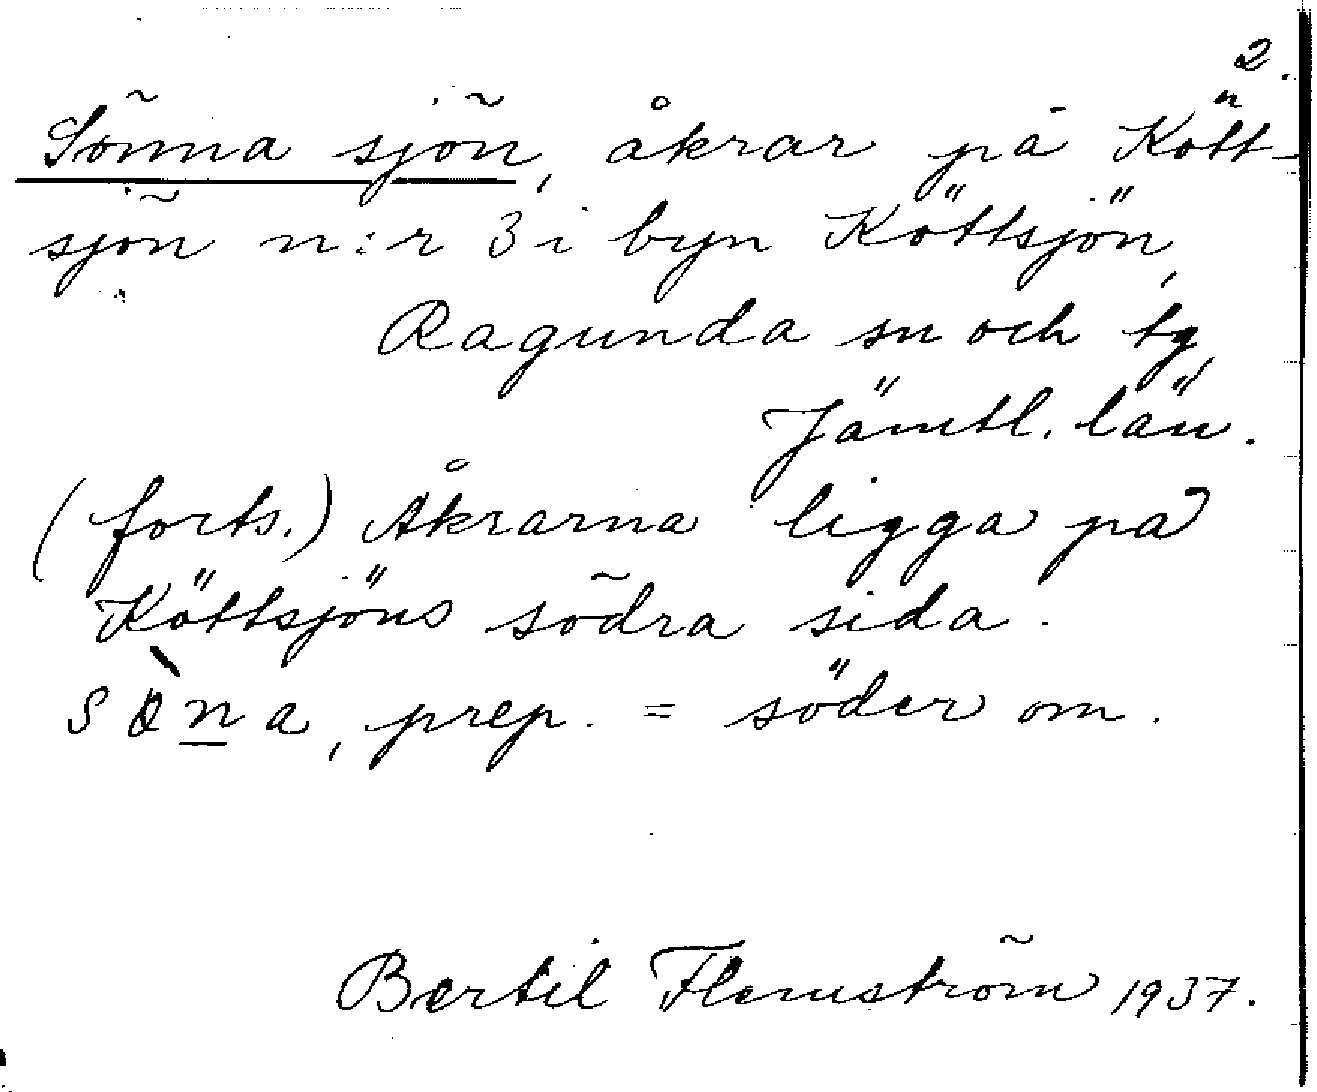 2.
Sönna sjön, åkrar på Kött-
sjön n:r 3 i byn Köttsjön,
Ragunda sn och tg,
Jämtl. län.
(forts.) Åkrarna ligga på
Köttsjöns södra sida.
sòna, prep. = söder om.
Bertil Flemström 1937.